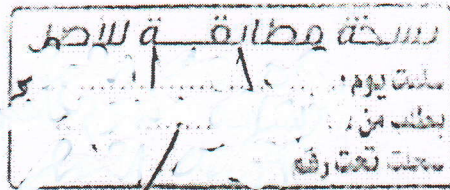 نسخة مطابقة للأصل
سلمت يوم :
بطلب من :
سجلت تحت رقم